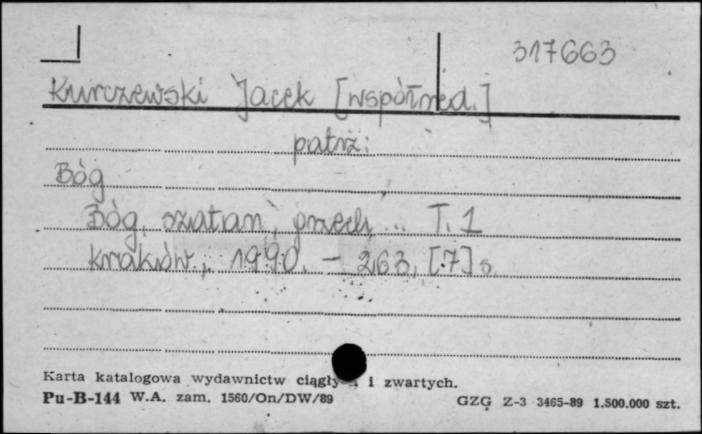 317663
Kurczewski Jacek [współred.]
patrz:
Bóg
Bóg, szatan, grzech... T. 1
Kraków, 1990. - 263, [7] s.
Karta katalogowa wydawnictw ciągły i zwartych.
Pu-B-144 W.A. zam. 1560/On/DW/89 GZG Z-3 3465-89 1.500.000 szt.